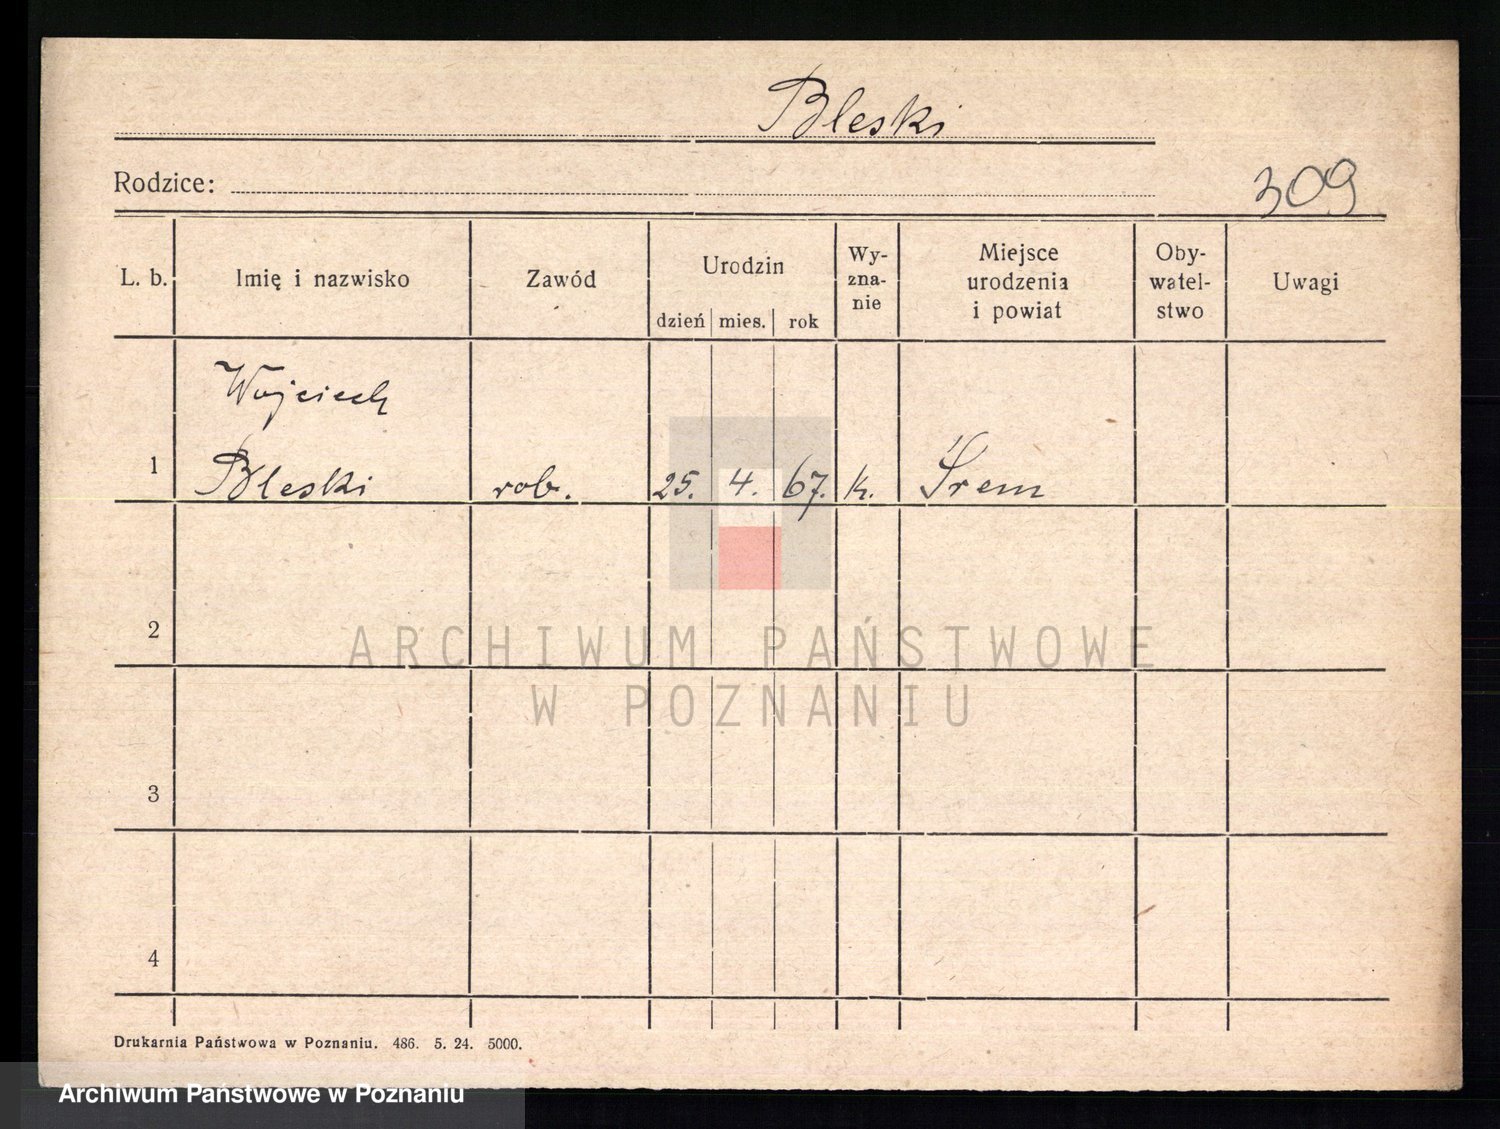 Bleski
Rodzice:
309
L. b. Imię i nazwisko Zawód Urodzin dzień mies. rok Wy-zna-nie Miejsce urodzenia i powiat Oby-watel-stwo Uwagi
Wojciech
1 Bleski rob. 25. 4. 67. k. Śrem
2
ARCHIWUM PAŃSTWOWE
W POZNANIU
3
4
Drukarnia Państwowa w Poznaniu. 486. 5. 24. 5000.
Archiwum Państwowe w Poznaniu